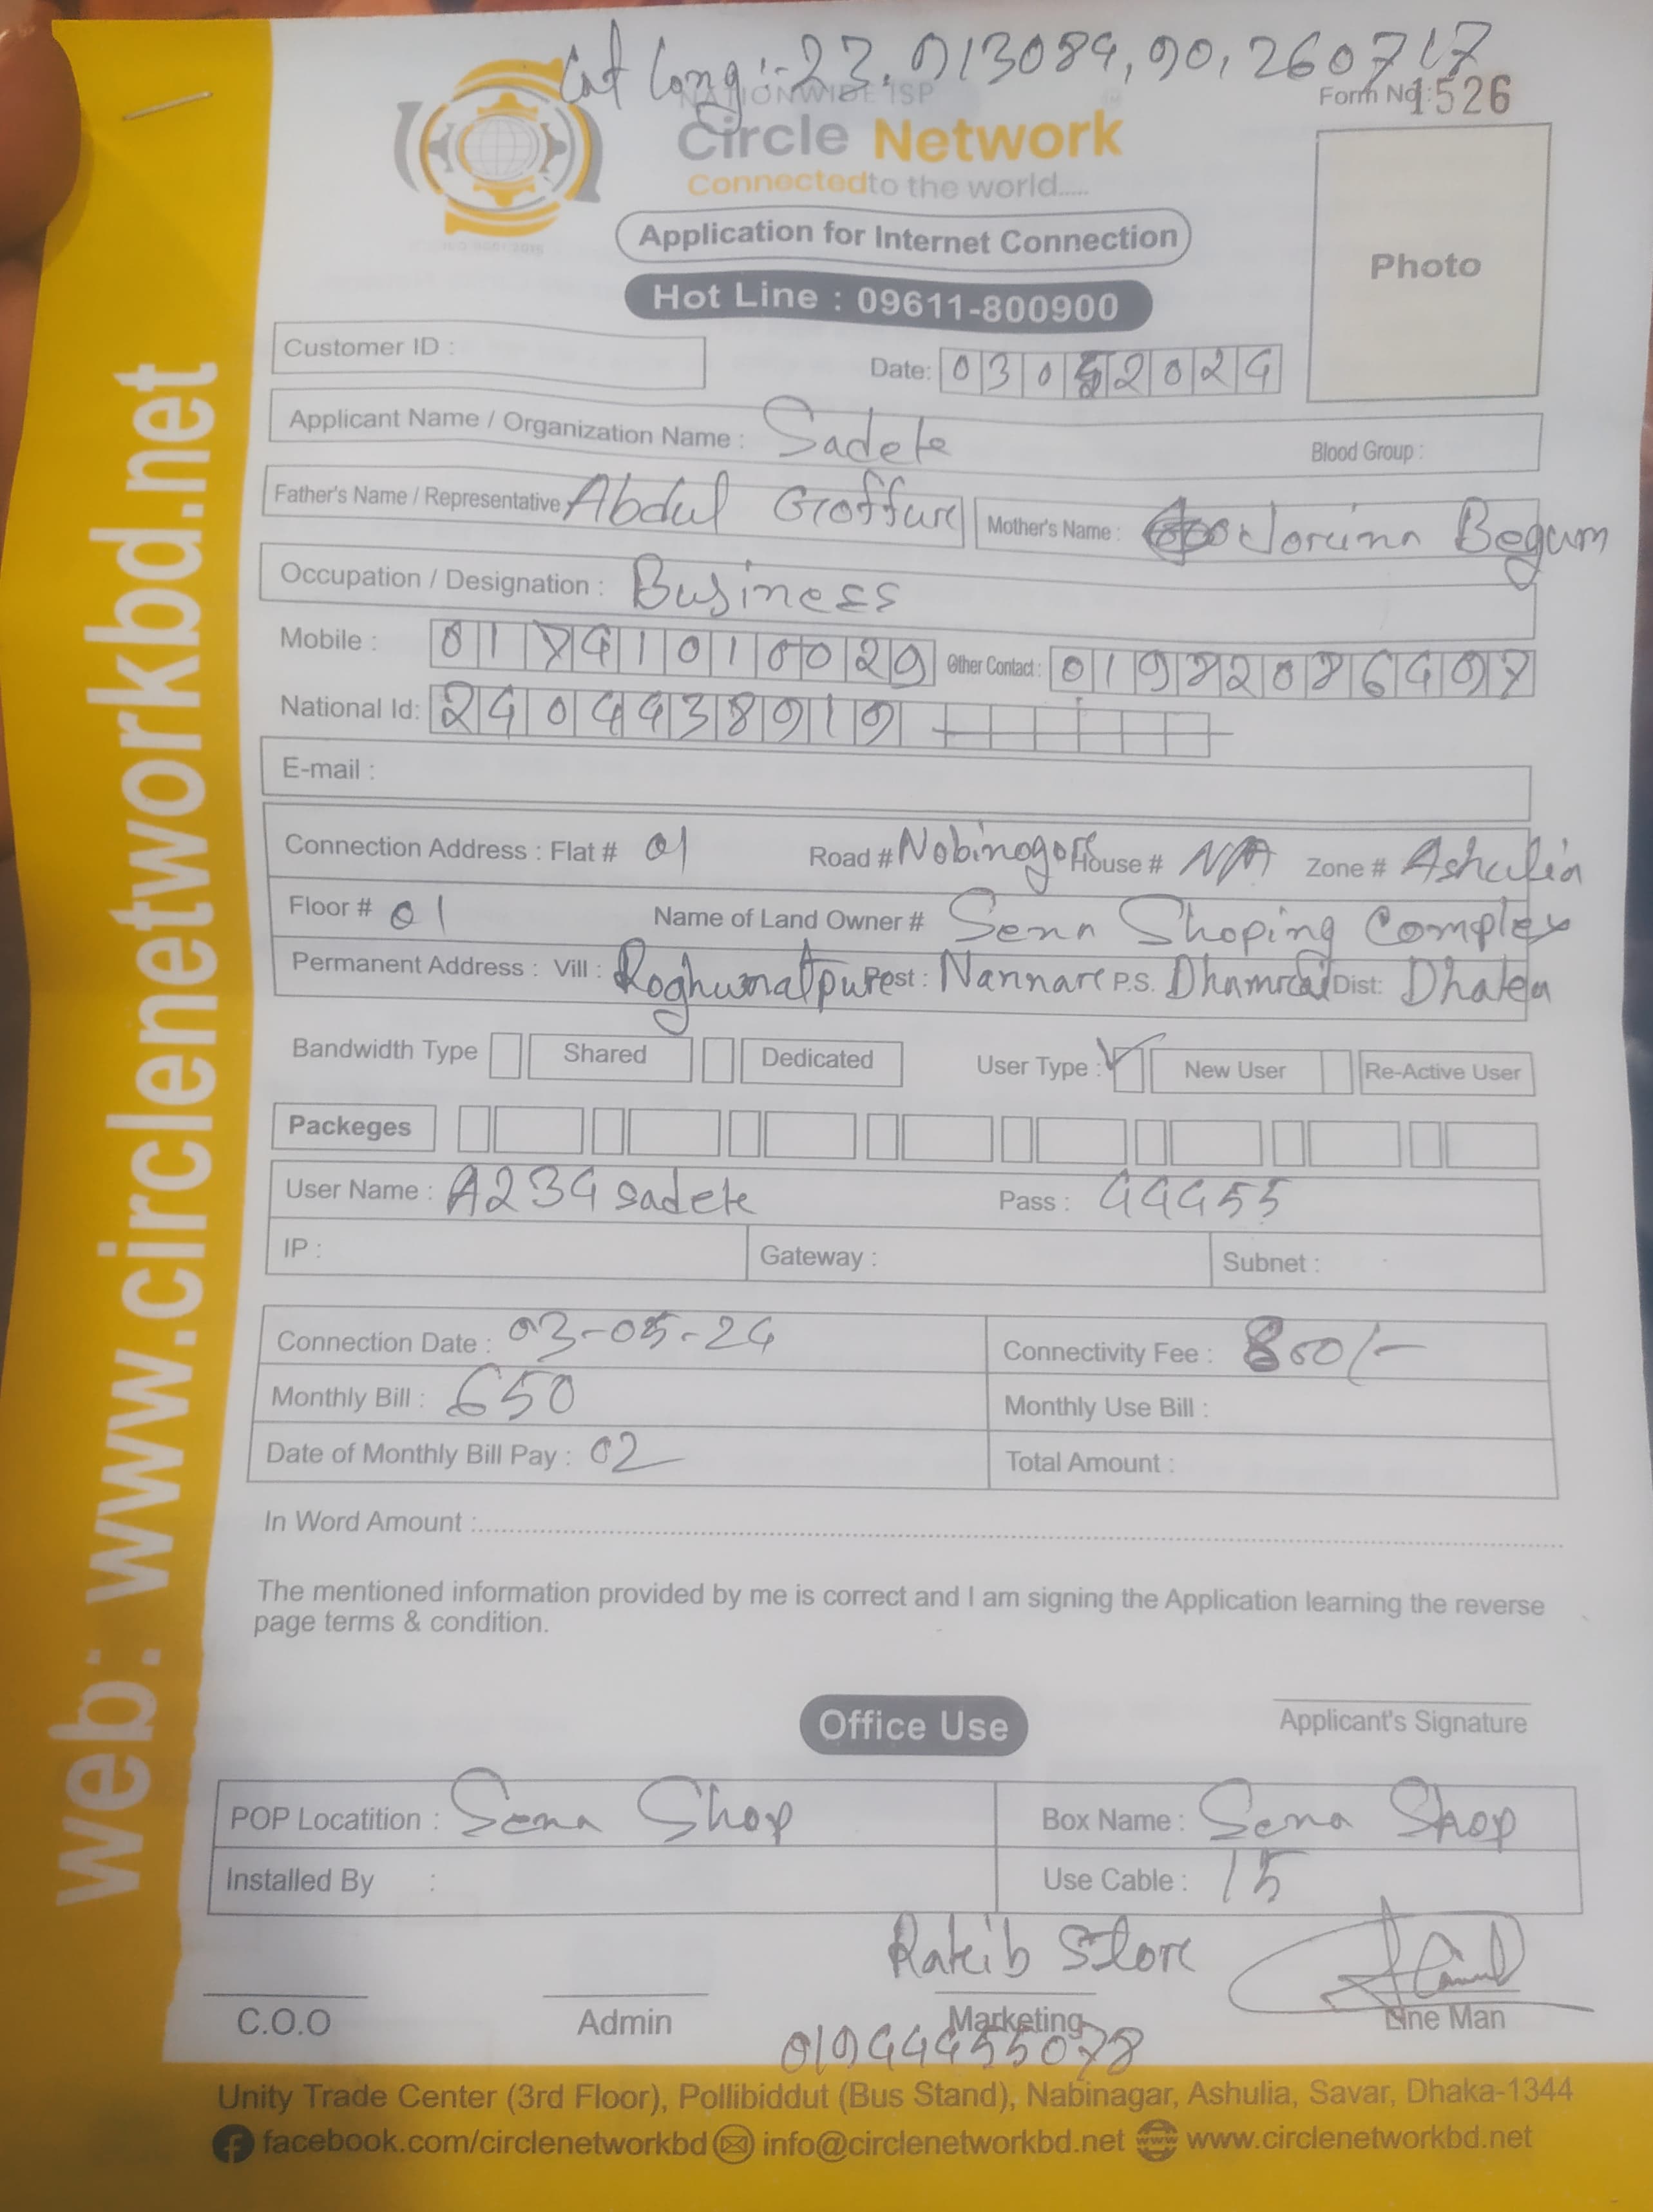 Lat Long:- 23.913084, 90.260717
NATIONWIDE ISP
Form No: 1526
Circle Network
Connected to the world.....
ISO 9001:2015
Application for Internet Connection
Photo
Hot Line : 09611-800900
Customer ID :
Date: 03052024
Applicant Name / Organization Name : Sadek
Blood Group :
Father's Name / Representative Abdul Goffur
Mother's Name : Begum
Occupation / Designation : Business
Mobile : 01741010029
Other Contact : 01972076497
National Id: 2404438919
E-mail :
Connection Address : Flat # 01 Road # Nobinogor House # N/A Zone # Ashulia
Floor # 01 Name of Land Owner # Sena Shoping Complex
Permanent Address : Vill : Roghunatpur Post : Nannar P.S. Dhamrai Dist: Dhaka
Bandwidth Type Shared Dedicated User Type : ✓ New User Re-Active User
Packeges
User Name : A234sadek Pass : 44455
IP : Gateway : Subnet :
Connection Date : 03-05-24 Connectivity Fee : 800/-
Monthly Bill : 650 Monthly Use Bill :
Date of Monthly Bill Pay : 02 Total Amount :
In Word Amount :
The mentioned information provided by me is correct and I am signing the Application learning the reverse
page terms & condition.
Applicant's Signature
Office Use
POP Locatition : Sena Shop Box Name : Sena Shop
Installed By : Use Cable : 15
Rakib Store
C.O.O Admin Marketing Line Man
01944455078
Unity Trade Center (3rd Floor), Pollibiddut (Bus Stand), Nabinagar, Ashulia, Savar, Dhaka-1344
facebook.com/circlenetworkbd info@circlenetworkbd.net www.circlenetworkbd.net
web: www.circlenetworkbd.net